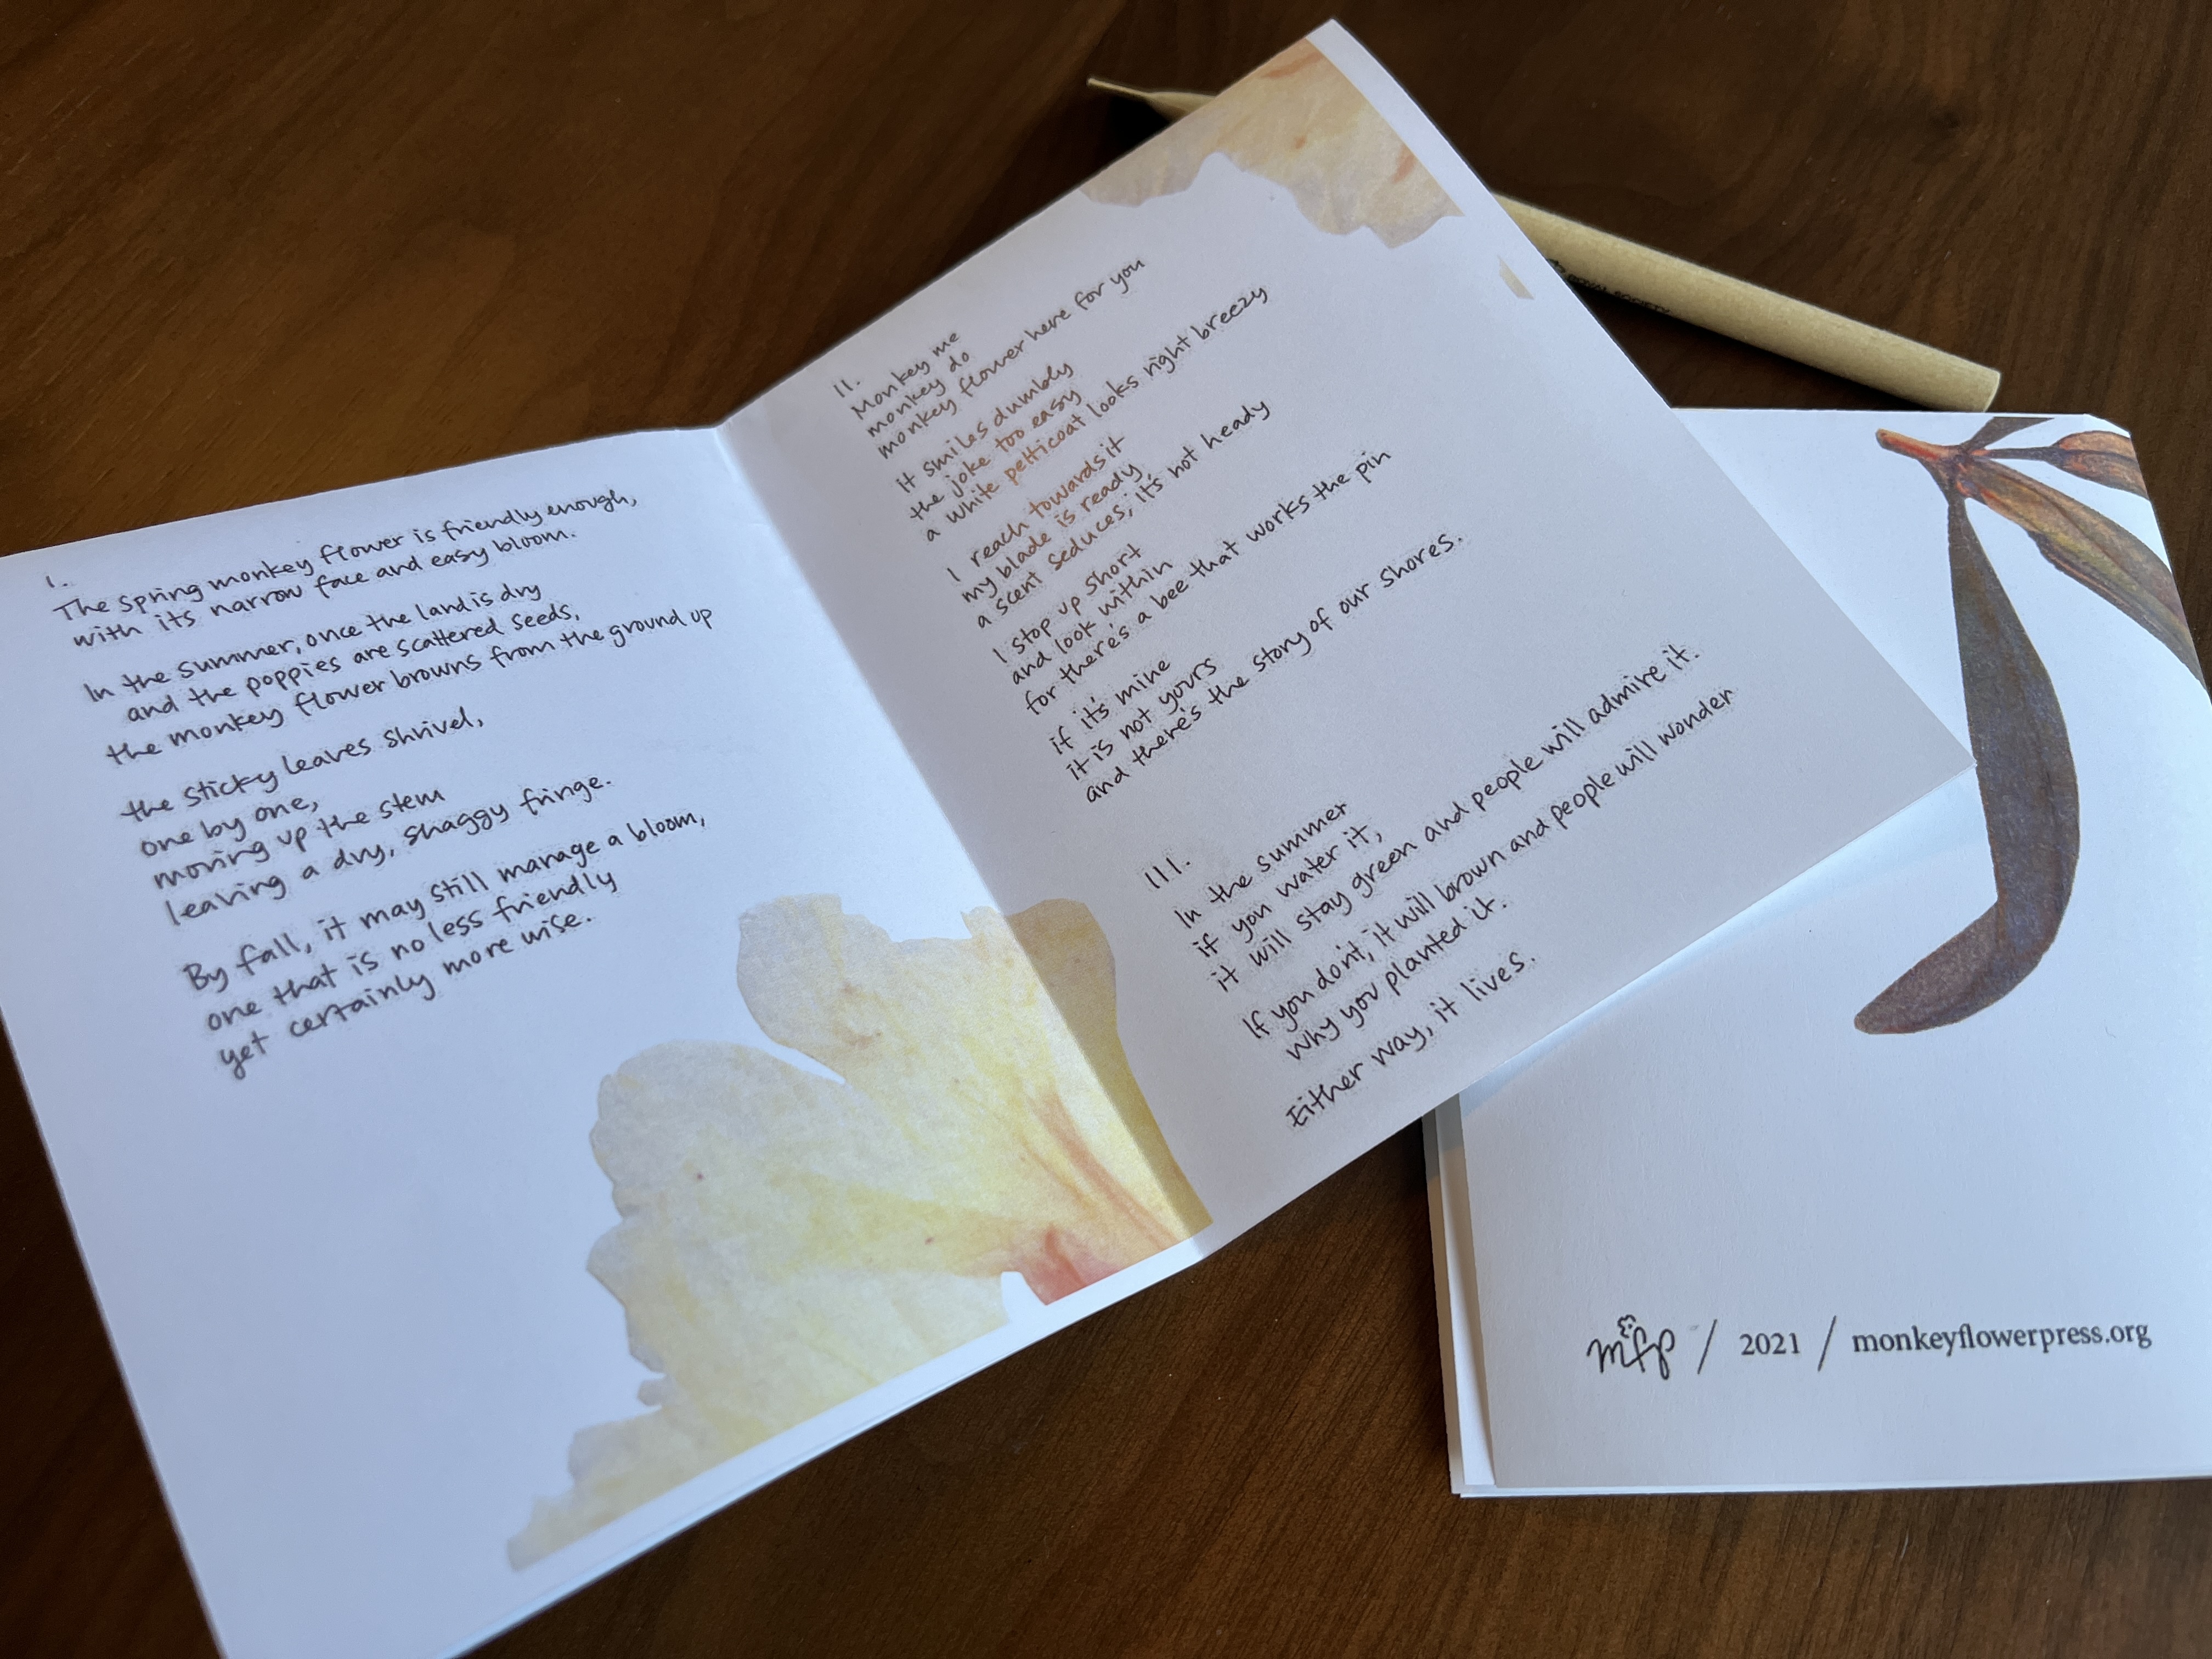 I.
The spring monkey flower is friendly enough,
with its narrow face and easy bloom.
In the summer, once the land is dry
and the poppies are scattered seeds,
the monkey flower browns from the ground up
the sticky leaves shrivel,
one by one,
moving up the stem
leaving a dry, shaggy fringe.
By fall, it may still manage a bloom,
one that is no less friendly
yet certainly more wise.
II.
Monkey me
monkey do
monkey flower here for you
it smiles dumbly
the joke too easy
a white petticoat looks right breezy
I reach towards it
my blade is ready
a scent seduces, it's not heady
I stop up short
and look within
for there's a bee that works the pin
if it's mine
it is not yours
and there's the story of our shores.
III.
In the summer
if you water it,
it will stay green and people will admire it.
If you don't, it will brown and people will wonder
why you planted it.
Either way, it lives.
mfp / 2021 / monkeyflowerpress.org
SOCIETY